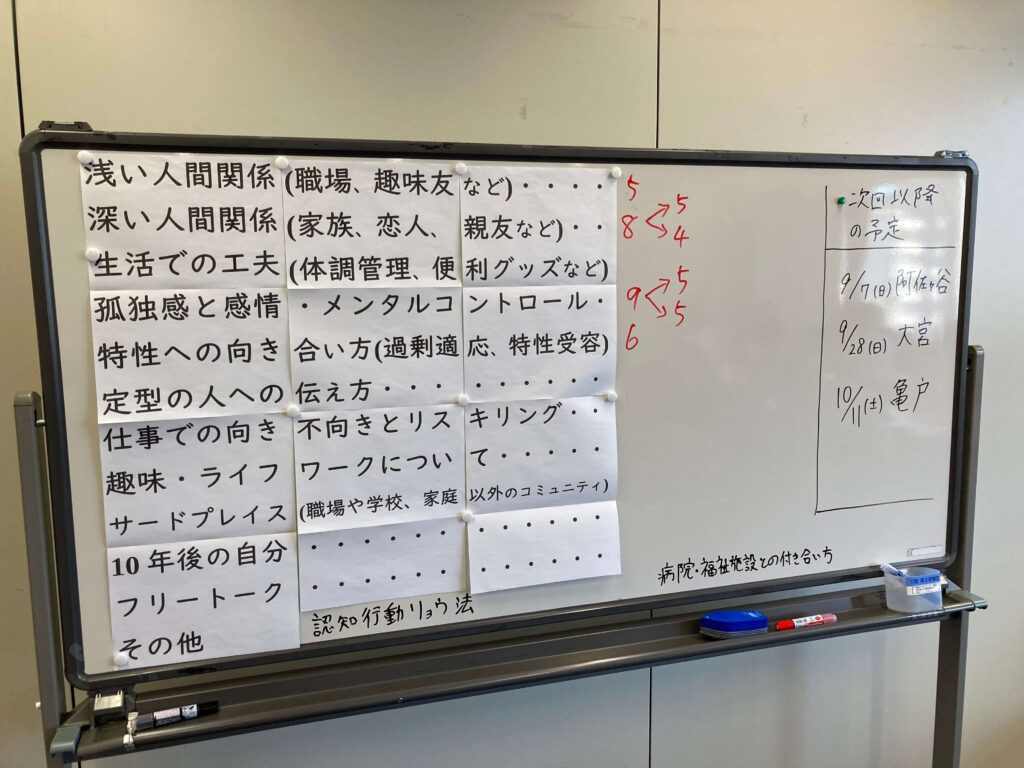 浅い人間関係(職場、趣味友など)・・・・5
深い人間関係(家族、恋人、親友など)・・8<5 4
生活での工夫(体調管理、便利グッズなど)
孤独感と感情・メンタルコントロール・9<5 5
特性への向き合い方(過剰適応、特性受容)6
定型の人への伝え方・・・・・・・・・・
仕事での向き不向きとリスキリング・・
趣味・ライフワークについて・・・・・
サードプレイス(職場や学校、家庭以外のコミュニティ)
10年後の自分・・・・・・・・・・・・
フリートーク・・・・・・・・・・
その他
認知行動リョウ法
病院・福祉施設との付き合い方
次回以降
の予定
9/7(日) 阿佐ヶ谷
9/28(日) 大宮
10/11(土) 亀戸